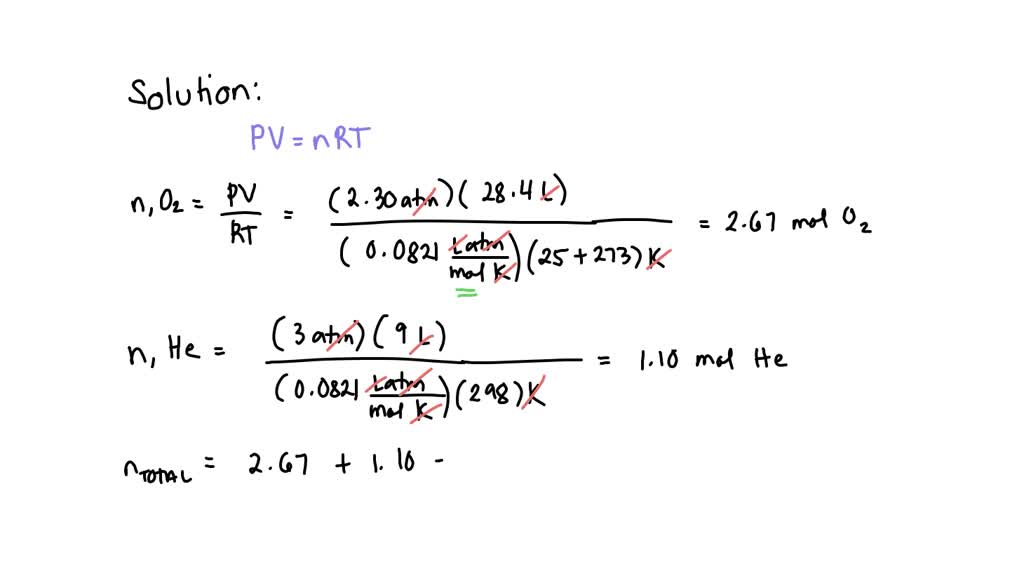 Solution:
PV = nRT
n, O₂ = PV/RT = (2.30 atm)(28.4 L) / (0.0821 L atm/mol K)(25 + 273) K = 2.67 mol O₂
n, He = (3 atm)(9 L) / (0.0821 L atm/mol K)(298) K = 1.10 mol He
n TOTAL = 2.67 + 1.10 -